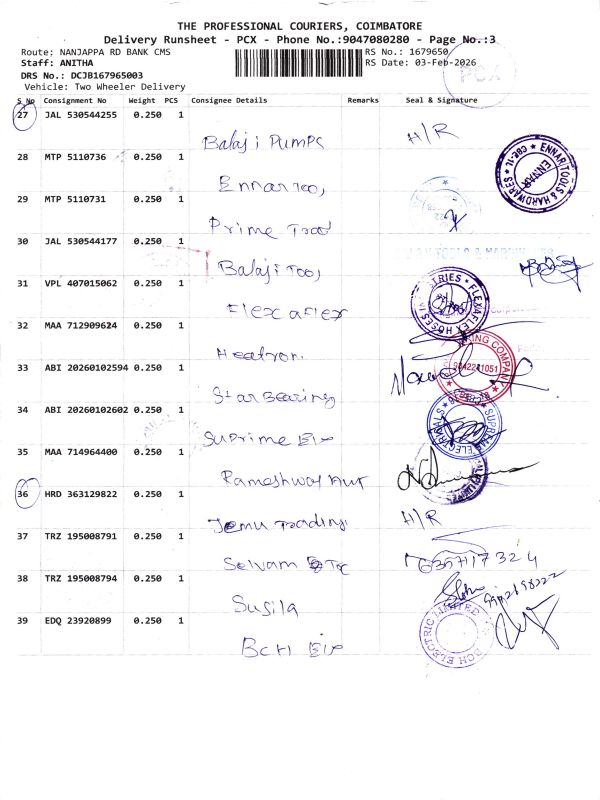 THE PROFESSIONAL COURIERS, COIMBATORE
Delivery Runsheet - PCX - Phone No.:9047080280 - Page No.:3
Route: NANJAPPA RD BANK CMS
RS No.: 1679650
Staff: ANITHA
RS Date: 03-Feb-2026
DRS No.: DCJB167965003
Vehicle: Two Wheeler Delivery
PCX
S No Consignment No Weight PCS Consignee Details Remarks Seal & Signature
27 JAL 530544255 0.250 1
Balaji Pumps H/R
28 MTP 5110736 0.250 1
ENNAR TOOLS & HARDWARES
CBE-1
ENNAR
Ennar Tool
29 MTP 5110731 0.250 1
Prime Tool
30 JAL 530544177 0.250 1
TOOLS & HARDWARES
Balaji Tool
31 VPL 407015062 0.250 1
FLEXAFLEX HOSES
Flexaflex
32 MAA 712909624 0.250 1
Heatron
33 ABI 20260102594 0.250 1
Star Bearing
34 ABI 20260102602 0.250 1
SUPREME ELECTRICALS
Suprime Ele
35 MAA 714964400 0.250 1
Rameshwar
36 HRD 363129822 0.250 1
Jemu Trading H/R
37 TRZ 195008791 0.250 1
Selvam
38 TRZ 195008794 0.250 1
Susila
39 EDQ 23920899 0.250 1
BCH ELECTRIC LIMITED
BCH Ele